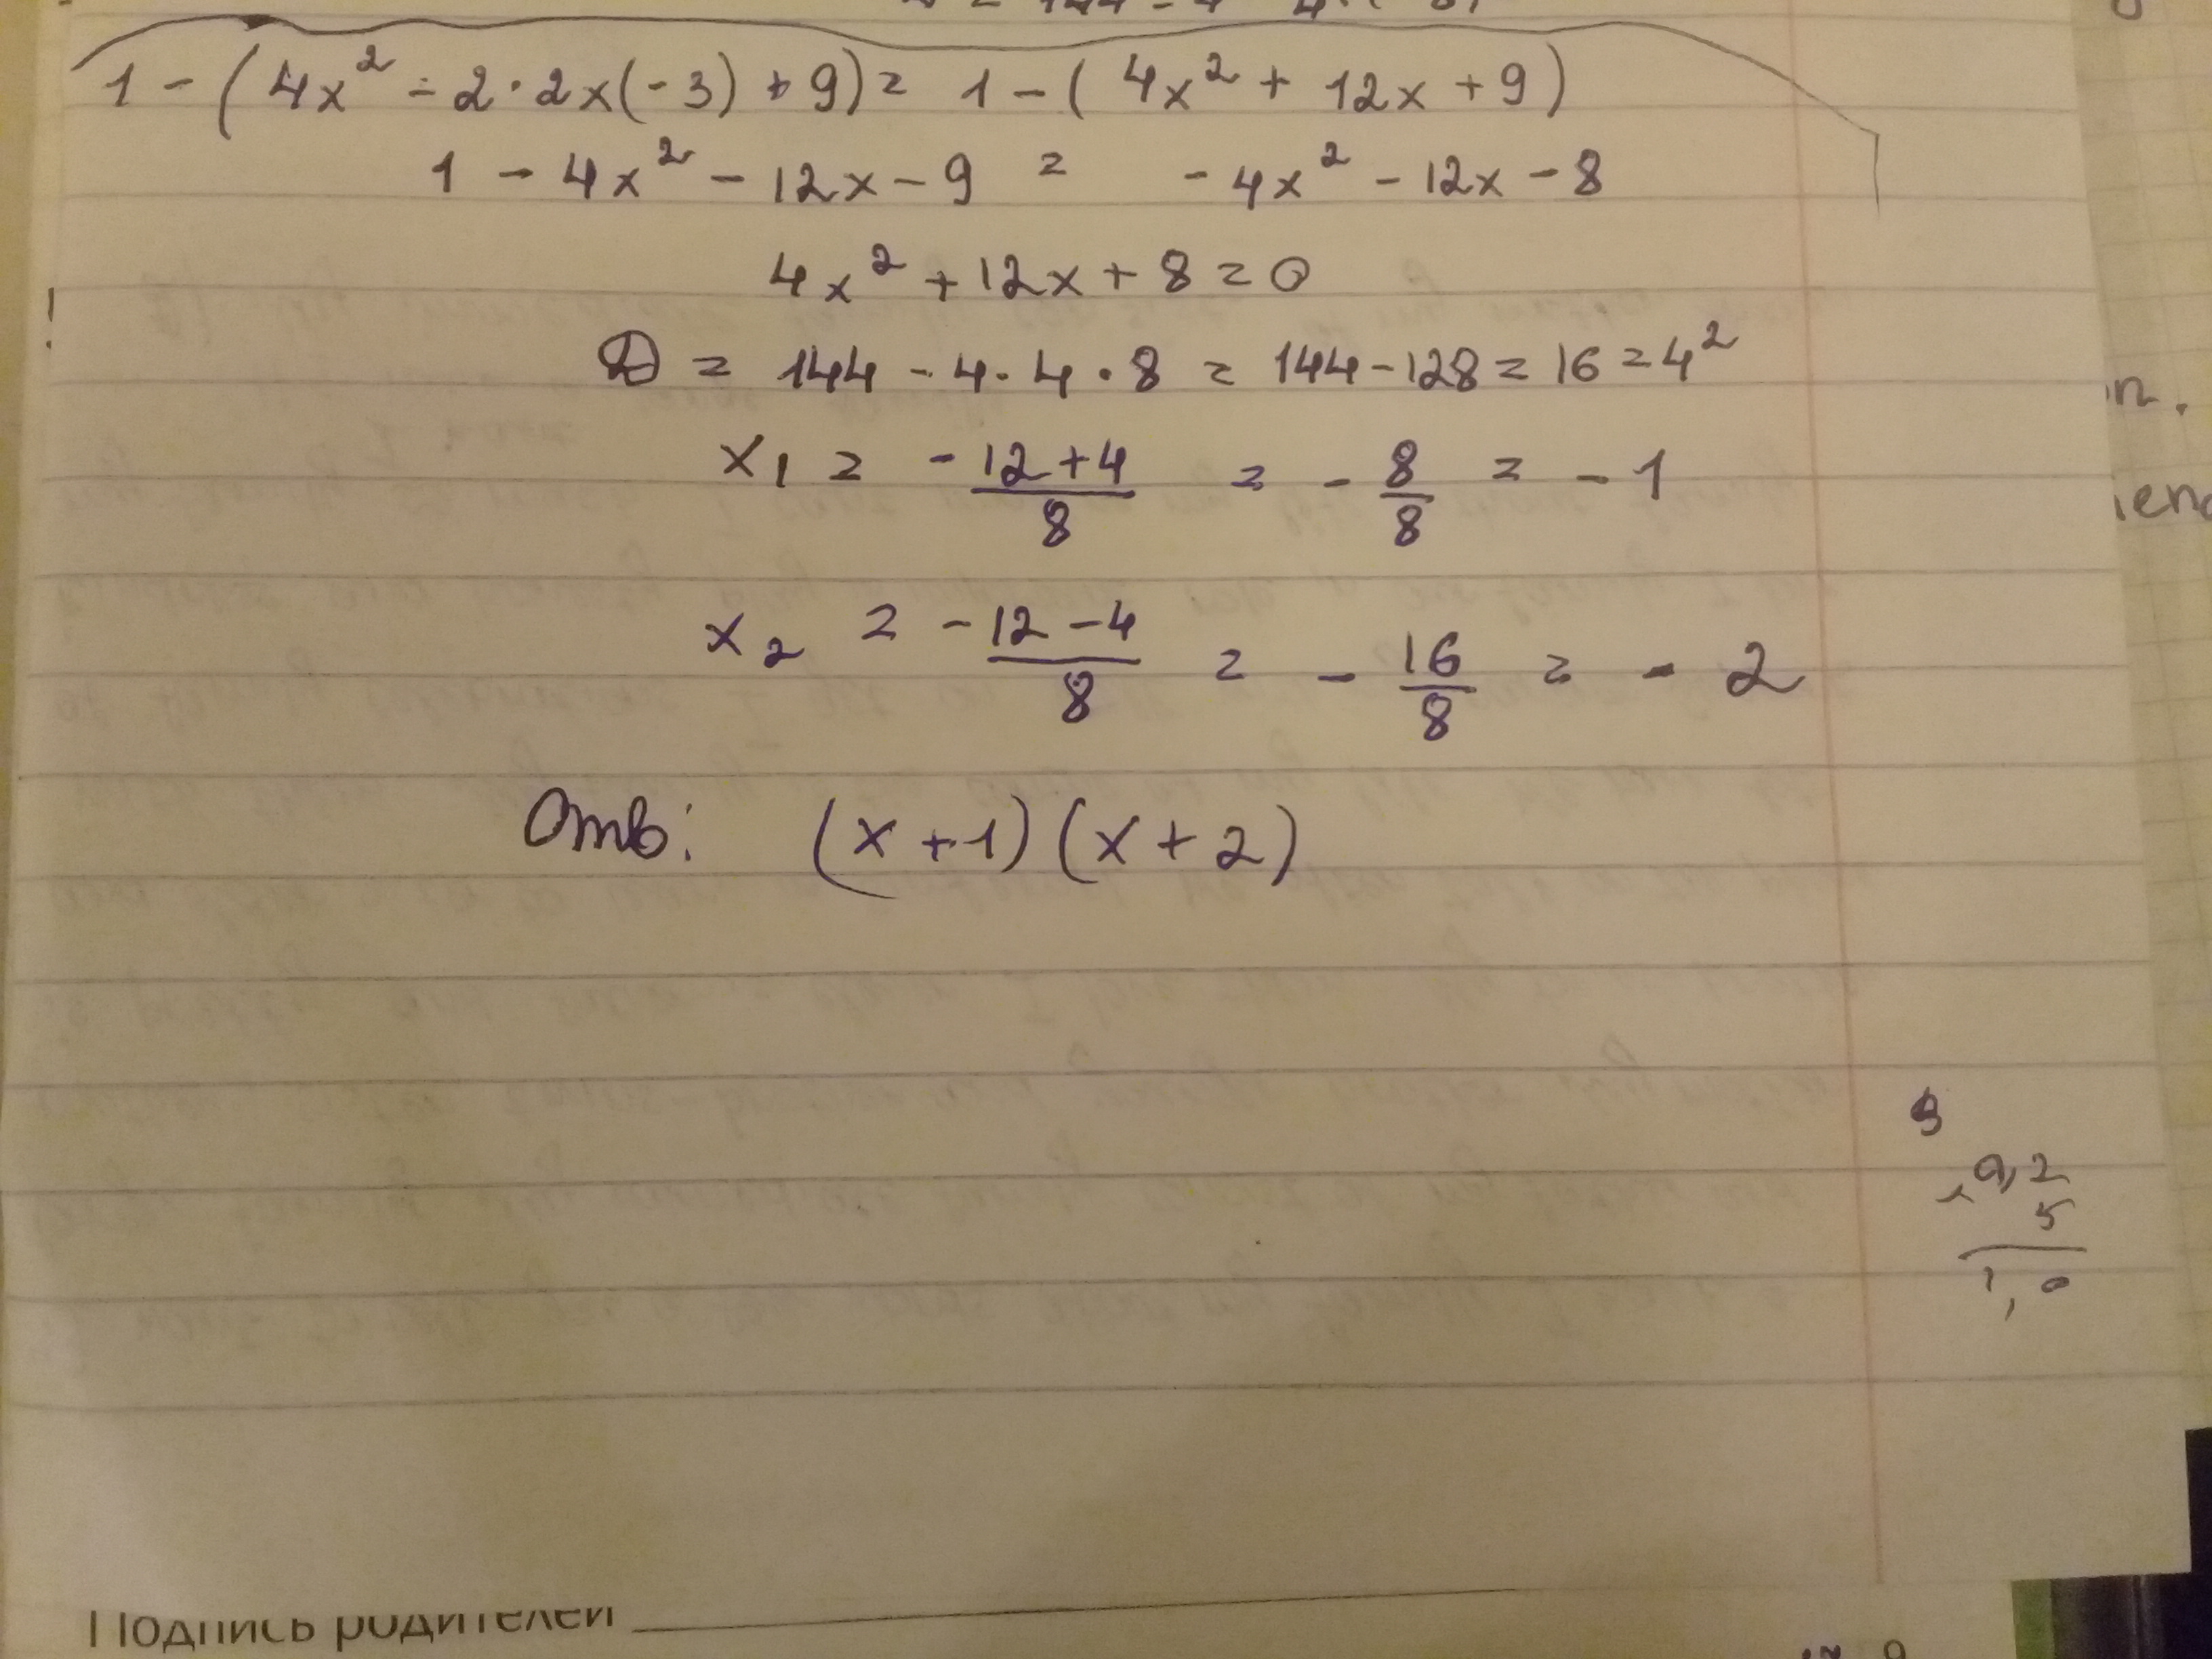 1 - (4x² - 2·2x(-3) + 9) = 1 - (4x² + 12x + 9)
1 - 4x² - 12x - 9 = -4x² - 12x - 8
4x² + 12x + 8 = 0
D = 144 - 4·4·8 = 144 - 128 = 16 = 4²
x₁ = -12+4/8 = -8/8 = -1
x₂ = -12-4/8 = -16/8 = -2
Отв: (x+1)(x+2)
0,2
5
1,0
Подпись родителей